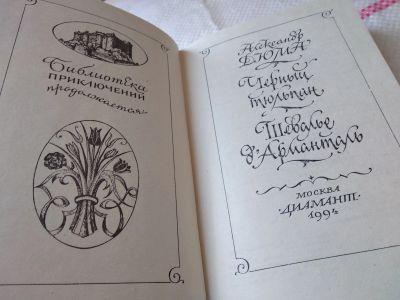 Библиотека
ПРИКЛЮЧЕНИЙ
продолжается
Александр
ДЮМА
Черный
тюльпан
Шевалье
д'Арманталь
МОСКВА
·ДИАМАНТ·
1994